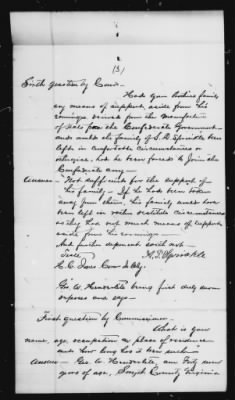 (5)
Sixth question by Com.
Had your brothers family
any means of support, aside from his
earnings derived from the manufacture
of Salt for the Confederate Government
and would the family of S. D. Spindle been
left in comfortable circumstances or
otherwise, had he been forced to join the
Confederate army—
Answer — Not sufficient for the support of
his family — If he had been taken
away from them, his family would have
been left in rather destitute circumstances
as they had not much means of support
aside from his earnings—
And further deponent saith not—
H. C.
Geo. W. Humerickle being first duly sworn
deposes and says—
First question by Commissioner—
What is your
name, age, occupation & place of residence
and how long has it been such
Answer — Geo. W. Humerickle, am Fifty
years of age, Smyth County Virginia